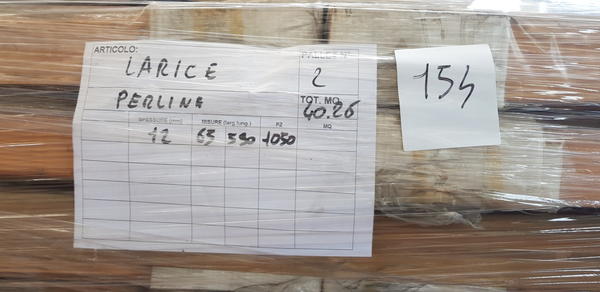 ARTICOLO:
LARICE
PERLINE
PALLET N°
2
TOT. MQ
40.26
SPESSORE (mm) MISURE (larg. lung.) PZ MQ
12 65 590 1050
154